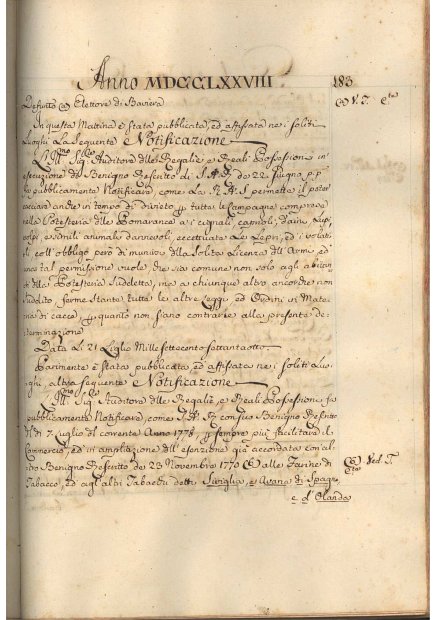 Anno MDCCLXXVIII 183
Defunto Elettore di Baviera
In questa Mattina è stata pubblicata, ed affissata nei soliti
Luoghi La seguente Notificazione
L'Ill.mo Sig. Auditore delle Regalie, e Reali Possessioni in
esecuzione di Benigno Rescritto di S.A.R. de 22 Giugno p.p.
fa pubblicamente Notificare, come La R.A.S. permette il poter
cacciare anche in tempo di divieto per tutta le Campagne comprese
nella Potesteria delle Pomarance a i cignali, caprioli, Daini, Lupi,
volpi, e simili animali dannevoli, eccettuate Le Lepri, ed i volati
coll'obbligo però di munirsi della solita Licenza dell'Armi, ed
una tal permissione vuole, che sia comune non solo agli abitan
ti della Potesteria suddetta, ma a chiunque altro ancorchè non
suddito, ferme stante tutte le altre Leggi ed Ordini in Mate
ria di caccia, per quanto non siano contrarie alla presente de
terminazione
Data Li 21 Luglio Mille settecento settantaotto
Parimente è stata pubblicata, ed affissata nei soliti Luo
ghi, altra seguente Notificazione
L'Ill.mo Sig. Auditore delle Regalie, e Reali Possessioni fa
pubblicamente Notificare, come S.A.R. con suo Benigno Rescritto
de 7 Luglio del corrente Anno 1778 per sempre più facilitare il
Commercio, ed in ampliazione dell'esenzione già accordata con al
tro Benigno Rescritto de 23 Novembre 1770 alle Farine di
Tabacco, ed agli altri Tabacchi detti Siviglia, e Avana di Spagna,
e d'Olanda